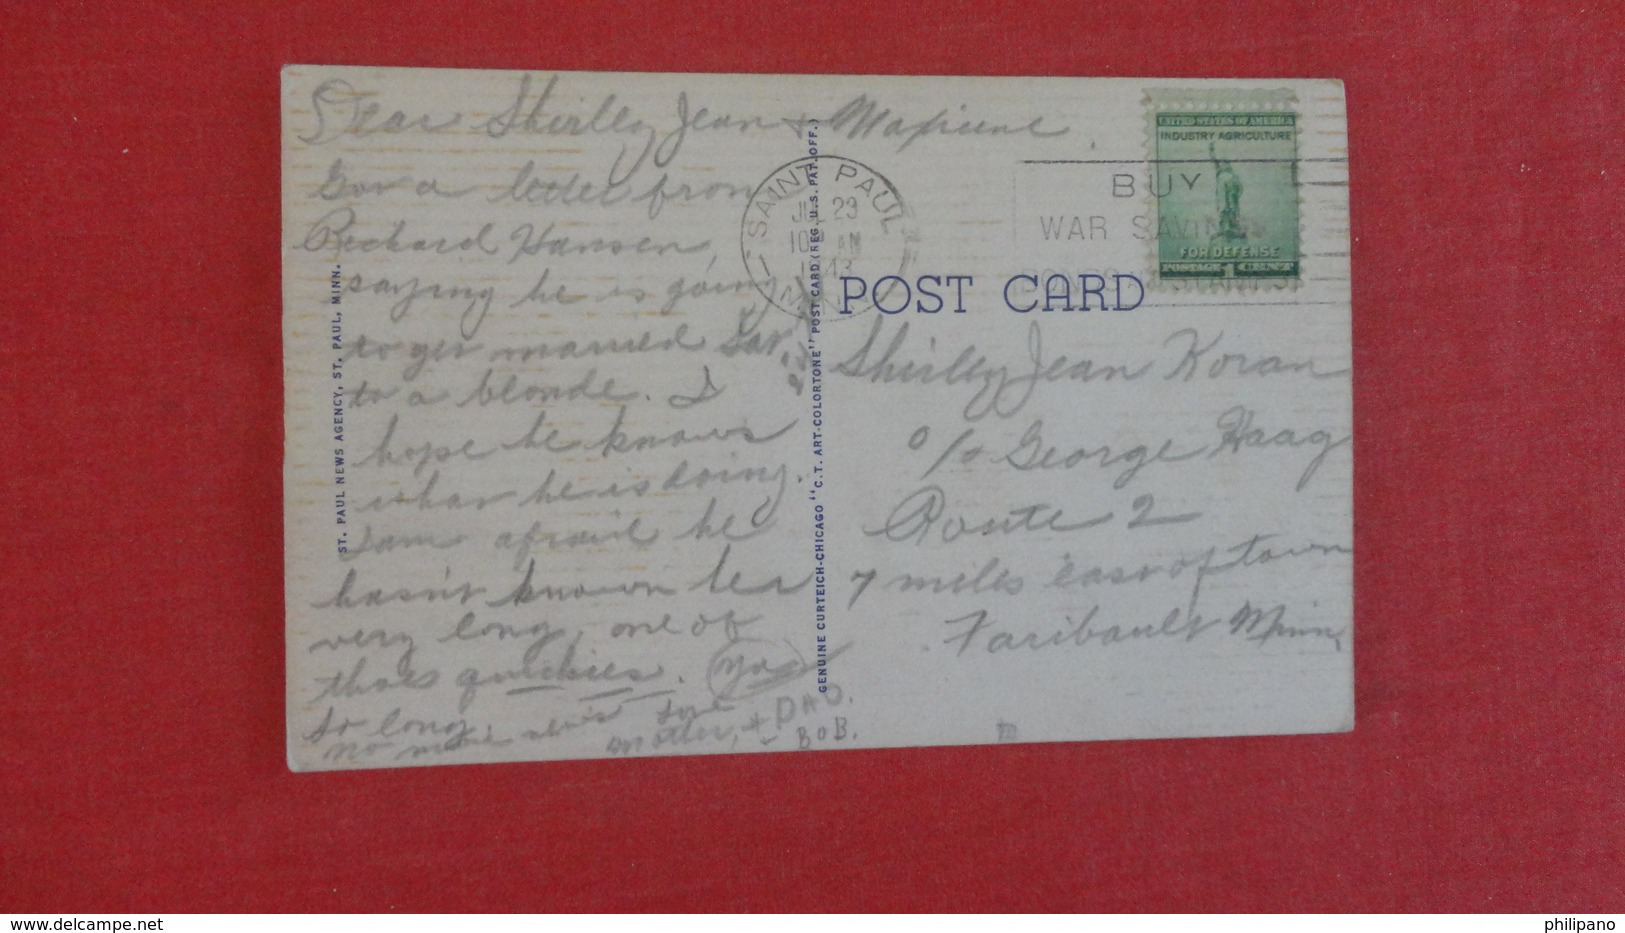 Dear Shirley Jean + Maxine
Got a letter from
Richard Hansen,
saying he is going
to get married Sat.
to a blonde. I
hope he knows
what he is doing.
I am afraid he
hasn't known her
very long, one of
thoes quickies.
So long,
no more news Love
Mother, + DAD.
- BOB.
ST. PAUL NEWS AGENCY, ST. PAUL, MINN.
GENUINE CURTEICH-CHICAGO "C.T. ART-COLORTONE" POST CARD (REG. U.S. PAT. OFF.)
SAINT PAUL
23
10 AM
MINN.
BUY
WAR SAVINGS
UNITED STATES OF AMERICA
INDUSTRY AGRICULTURE
FOR DEFENSE
POSTAGE 1 CENT
POST CARD
Shirley Jean Koran
c/o George Haag
Route 2
7 miles east of town
Faribault Minn.
www.delcampe.net
philipano